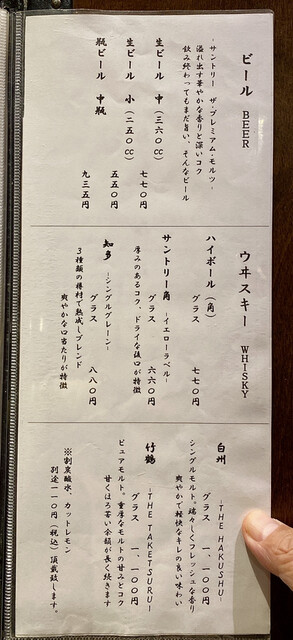 ビール BEER
-サントリー ザ・プレミアム・モルツ-
溢れ出す華やかな香りと深いコク
飲み終わってもまだ旨い、そんなビール
生ビール 中（三六〇cc） 七七〇円
生ビール 小（二五〇cc） 五五〇円
瓶ビール 中瓶 九三五円
ウヰスキー WHISKY
ハイボール（角）
グラス 七七〇円
サントリー角 -イエローラベル-
グラス 六六〇円
厚みのあるコク、ドライな後口が特徴
知多 -シングルグレーン-
グラス 八八〇円
3種類の樽材で熟成しブレンド
爽やかな口当たりが特徴
白州 -THE HAKUSHU-
グラス 一、一〇〇円
シングルモルト。瑞々しくフレッシュな香り
爽やかで軽快なキレの良い味わい
竹鶴 -THE TAKETSURU-
グラス 一、一〇〇円
ピュアモルト。重厚なモルトの甘みとコク
甘くほろ苦い余韻が長く続きます
※割炭酸水、カットレモン
別途一一〇円（税込）頂戴致します。